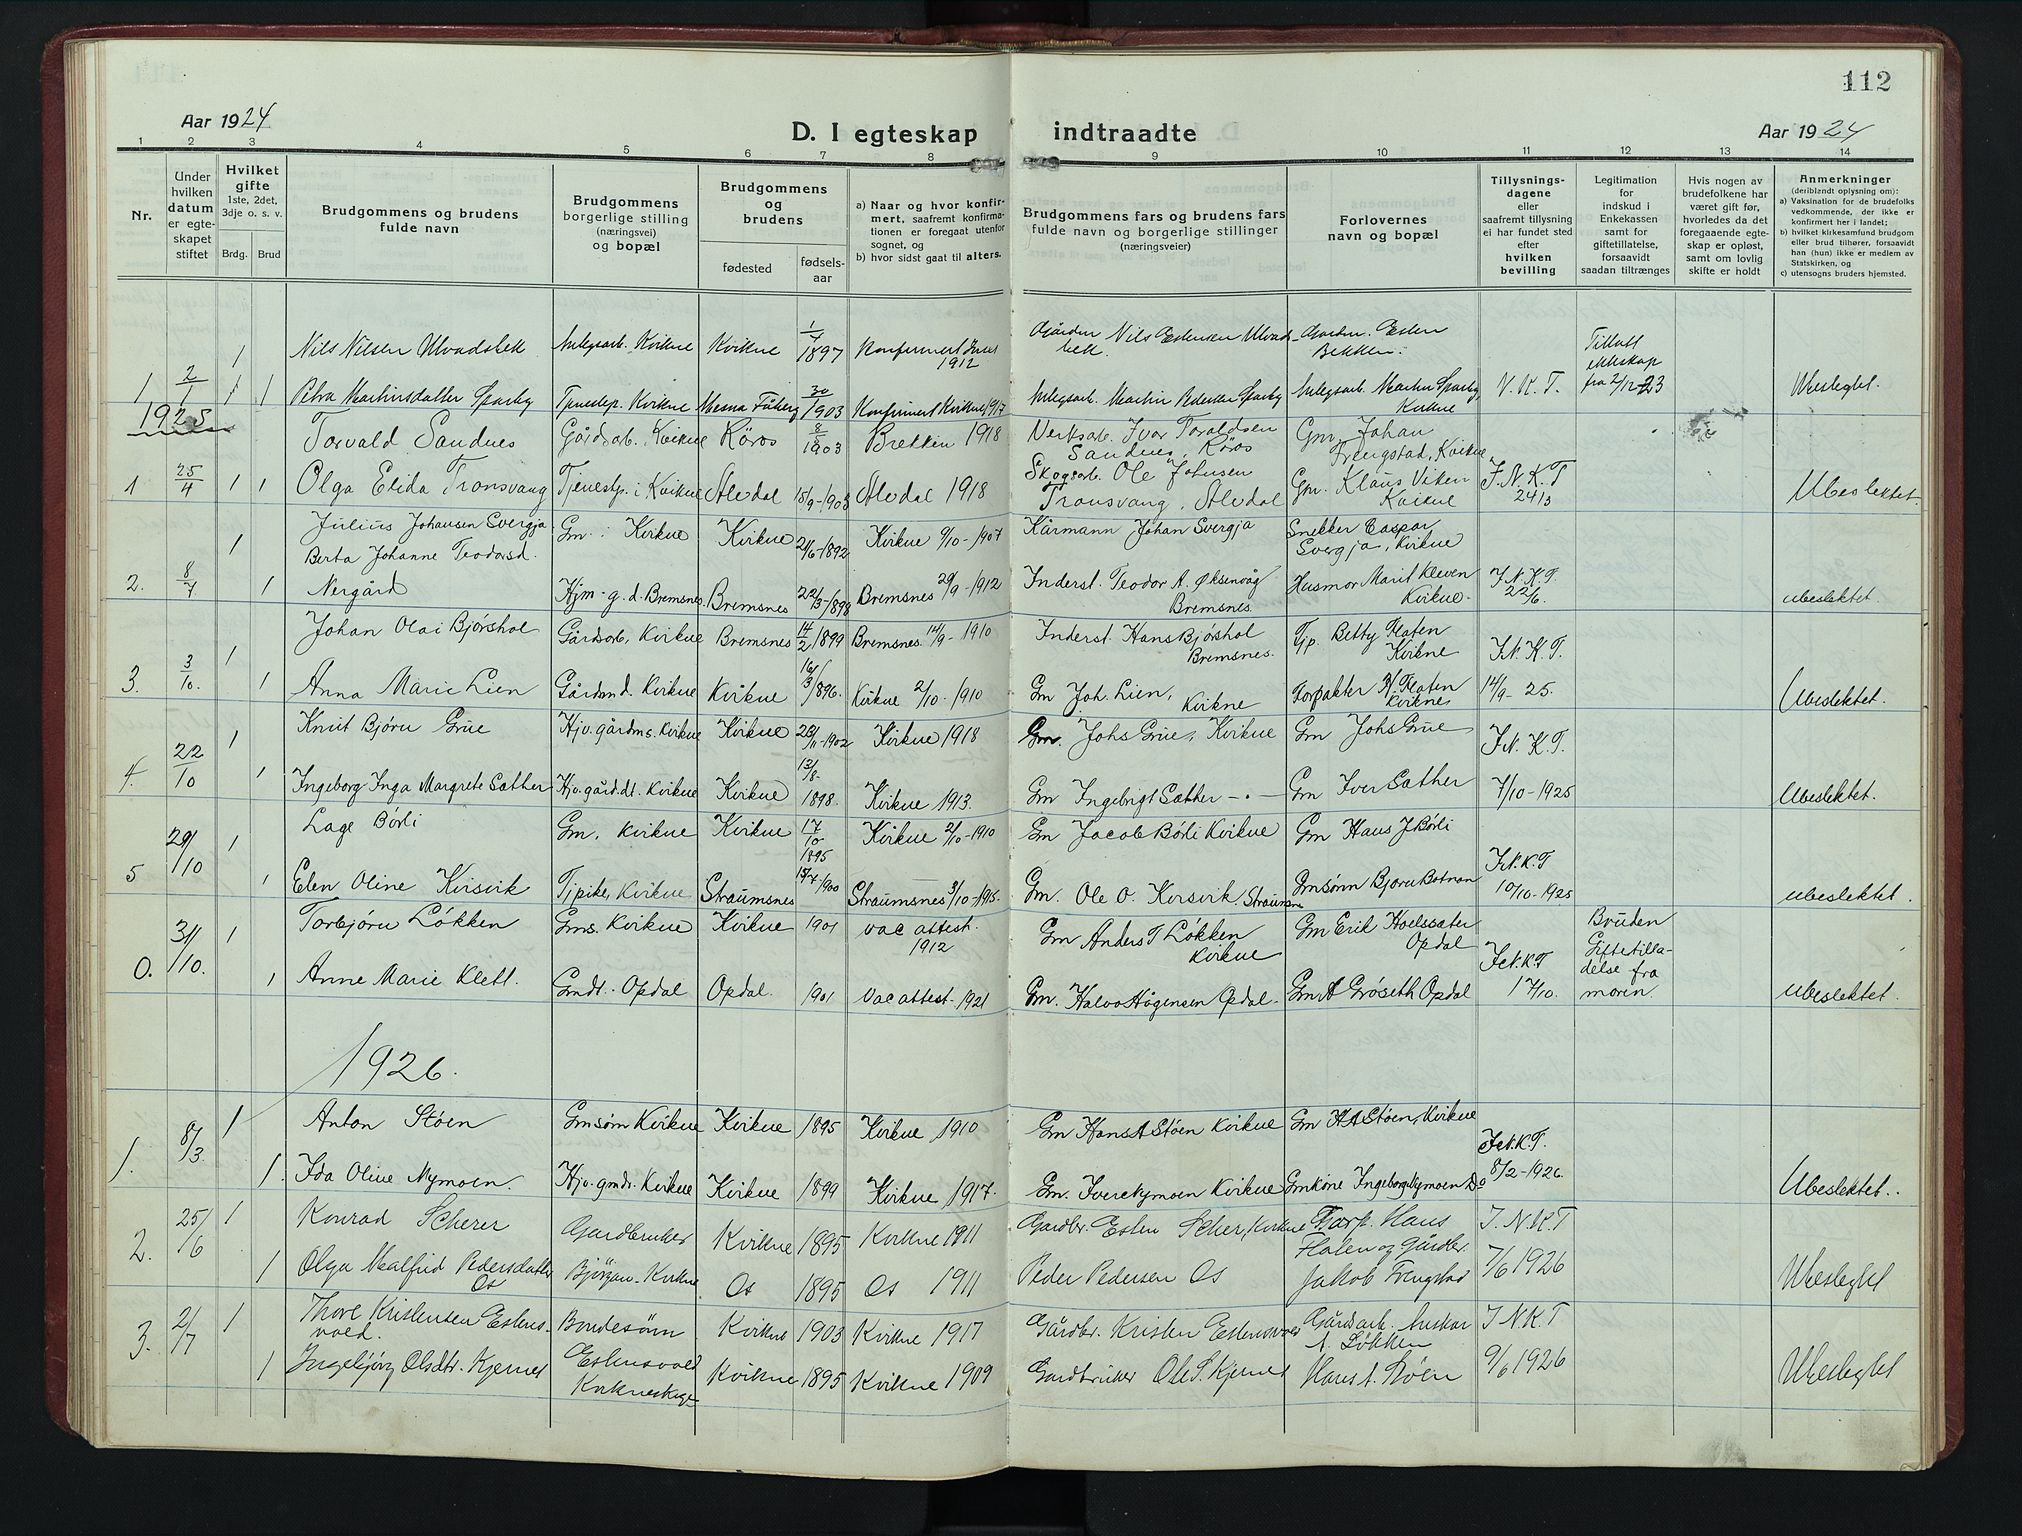 112
Aar 1924
D. I egteskap indtraadte
Aar 1924
1 2 3 4 5 6 7 8 9 10 11 12 13 14
Nr.
Under hvilken datum er egteskapet stiftet
Hvilket gifte 1ste, 2det, 3dje o. s. v.
Brdg. Brud
Brudgommens og brudens fulde navn
Brudgommens borgerlige stilling (næringsvei) og bopæl
Brudgommens og brudens
fødested fødselsaar
a) Naar og hvor konfirmert, saafremt konfirmationen er foregaat utenfor sognet, og
b) hvor sidst gaat til alters.
Brudgommens fars og brudens fars fulde navn og borgerlige stillinger (næringsveier)
Forlovernes navn og bopæl
Tillysningsdagene eller saafremt tillysning ei har fundet sted efter hvilken bevilling
Legitimation for indskud i Enkekassen samt for giftetillatelse, forsaavidt saadan tiltrænges
Hvis nogen av brudefolkene har været gift før, hvorledes da det foregaaende egteskap er opløst, samt om lovlig skifte er holdt
Anmerkninger (deriblandt oplysning om):
a) Vaksination for de brudefolks vedkommende, der ikke er konfirmert her i landet;
b) hvilket kirkesamfund brudgom eller brud tilhører, forsaavidt han (hun) ikke er medlem av Statskirken, og
c) utensogns bruders hjemsted.
1 Nils Nilsen Ulvadsbek Anlegsarb. Kvikne Kvikne 1/4 1897 Konfirmert 1912 Gårdbr. Nils Estensen Ulvadsbek Gardbr. Esten Bekken
1 2/1 1 1 Petra Martinsdatter Sparby Tjenestep. Kvikne Mesna Fåberg 30/1903 Konfirmert Kvikne 1917 Anlegsarb. Martin Pedersen Sparby Anlegsarb. Martin Sparby, Kvikne V. K. T. Tillatt ekteskap fra 2/12-23 Ubeslegtet.
1925
Torvald Sandnes Gårdsarb. Kvikne Röros 8/8 1903 Brekken 1918 Verksarb. Ivar Toraldsen Sandnes, Röros Gm. Johan Frengstad, Kvikne
1 25/4 1 1 Olga Elida Tronsvang Tjenestp. i Kvikne Alvdal 15/9-1903 Alvdal 1918 Skogsarb. Ole Johnsen Tronsvang, Alvdal Gm. Klaus Viken Kvikne I. N. K. T 24/3 Ubeslektet
1 Julius Johansen Svergja Gm. Kvikne Kvikne 21/6-1892 Kvikne 6/10-1907 Kårmann Johan Svergja Snekker Caspar Svergja, Kvikne
2. 8/7 1 Berta Johanne Teodorsd. Nergård Hjm.g.d. Bremsnes. Bremsnes 22/3-1898 Bremsnes 29/9-1912 Inderst. Teodor A. Øksenvåg Bremsnes. Husmor Marit Kleven Kvikne. I. N. K. T. 22/6. ubeslektet.
1 Johan Olai Bjørshol Gårdsarb. Kvikne Bremsnes 14/2 1899 Bremsnes. 14/9-1910 Inderst. Hans Bjöshol Bremsnes. Tjp. Betty Flaten Kvikne I. N. K. T.
3. 3/10. 1 Anna Marie Lien Gårdmd. Kvikne Kvikne 16/3 1896. Kvikne 2/10-1910 Gm Joh. Lien, Kvikne Forpakter H. Flaten Kvikne 14/9-25. Ubeslektet.
1 Knut Björn Grue Hjv. gårdms. Kvikne Kvikne 23/11-1902 Kvikne 1918 Gm. Johs Grue, Kvikne Gm Johs Grue I. N. K. T.
4. 22/10 1 Ingeborg Inga Margrete Sæther Hjv. gård.dt. Kvikne Kvikne 13/8 1898. Kvikne 1913. Gm Ingebrigt Sæther -.- Gm Iver Sæther 7/10-1925 Ubeslektet.
1 Lage Børli Gm, Kvikne Kvikne 17/10 1895 Kvikne 2/10-1910 Gm Jacob Børli Kvikne Gm Hans J Børli
5 29/10 1 Elen Oline Korsvik Tjpike, Kvikne Straumsnes 15/7-1900 Straumsnes 3/10-1915. Gm. Ole O. Korsvik, Straumsnes Gmsønn Bjørn Botnan I. N. K. T 10/10-1925 ubeslektet.
1 Torbjörn Løkken Gms. Kvikne Kvikne 1901 vac attest. 1912 Gm Anders T Løkken Kvikne Gm Erik Hoelssæter Opdal
0. 31/10. 1 Anne Marie Klett. Gmdt. Opdal Opdal. 1901 Vac attest. 1921 Gm. Halvo Hågensen Opdal. Gm A Grøseth Opdal I. N. K. T 17/10. Bruden Giftetilladelse fra moren. ubeslektet.
1926.
1 Anton Støen Gmsønn Kvikne Kvikne 1895 Kvikne 1910 Gm Hans A Støen Kvikne Gm H A Støen, Kvikne
1. 8/3 1. Ida Oline Nymoen. Hjv. gmdt. Kvikne Kvikne 1899 Kvikne 1917. Gm. Iver Nymoen Kvikne Gmkone Ingeborg Nymoen Do I. N. K. T. 8/2-1926. Ubeslektet.
2. 25/6 1 Konrad Scherer Gardbruker Kvikne 1895 Kvikne 1911 Gardbr. Esten Scher, Kvikne Forp. Hans Flaten og Gårdbr. I. N. K. T
1 Olga Malfrid Pedersdatter Os Bjørgan Kvikne Os 1895 Os 1911 Peder Pedersen Os Jakob Frengstad 7/6 1926 Ubeslegtet
3. 2/7 1 Thore Kristensen Estensvold. Bondesønn Kvikne 1903 Kvikne 1917 Gårdbr. Kristen Estensvold Gårdsarb. A. Løkken I. N. K. T
1 Ingebjørg Olsdtr. Kjernet Estensvold Kvikneskogen Kvikne 1895 Kvikne 1909 Gardbruker Ole S. Kjernet Hans A. Støen 9/6 1926 Ubeslegtet